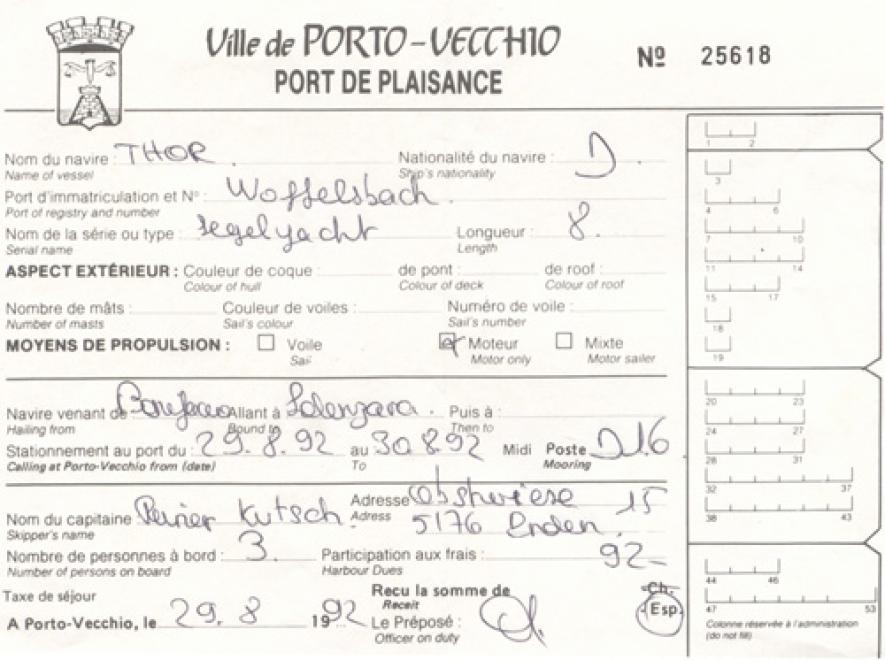 Ville de PORTO-VECCHIO
PORT DE PLAISANCE
Nº 25618
Nom du navire : THOR Nationalité du navire : D
Name of vessel Ship's nationality
Port d'immatriculation et Nº : Woffelsbach
Port of registry and number
Nom de la série ou type : Segelyacht Longueur : 8.
Serial name Length
ASPECT EXTÉRIEUR : Couleur de coque : de pont : de roof :
Colour of hull Colour of deck Colour of roof
Nombre de mâts : Couleur de voiles : Numéro de voile :
Number of masts Sail's colour Sail's number
MOYENS DE PROPULSION : Voile Moteur Mixte
Sail Motor only Motor sailer
Navire venant de Allant à Solenzara. Puis à :
Hailing from Bound to Then to
Stationnement au port du : 29.8.92 au 30.8.92 Midi Poste D16
Calling at Porto-Vecchio from (date) To Mooring
Nom du capitaine Kutsch. Adresse Obstwiese 15
Skipper's name Adress 5176
Nombre de personnes à bord : 3. Participation aux frais : 92-
Number of persons on board Harbour Dues
Taxe de séjour Recu la somme de Ch.
Receit Esp
A Porto-Vecchio, le 29.8 1992 Le Préposé :
Officer on duty
1 2
3
4 6
7 10
11 14
15 17
18
19
20 23
24 27
28 31
32 37
38 43
44 46
47 53
Colonne réservée à l'administration
(do not fill)